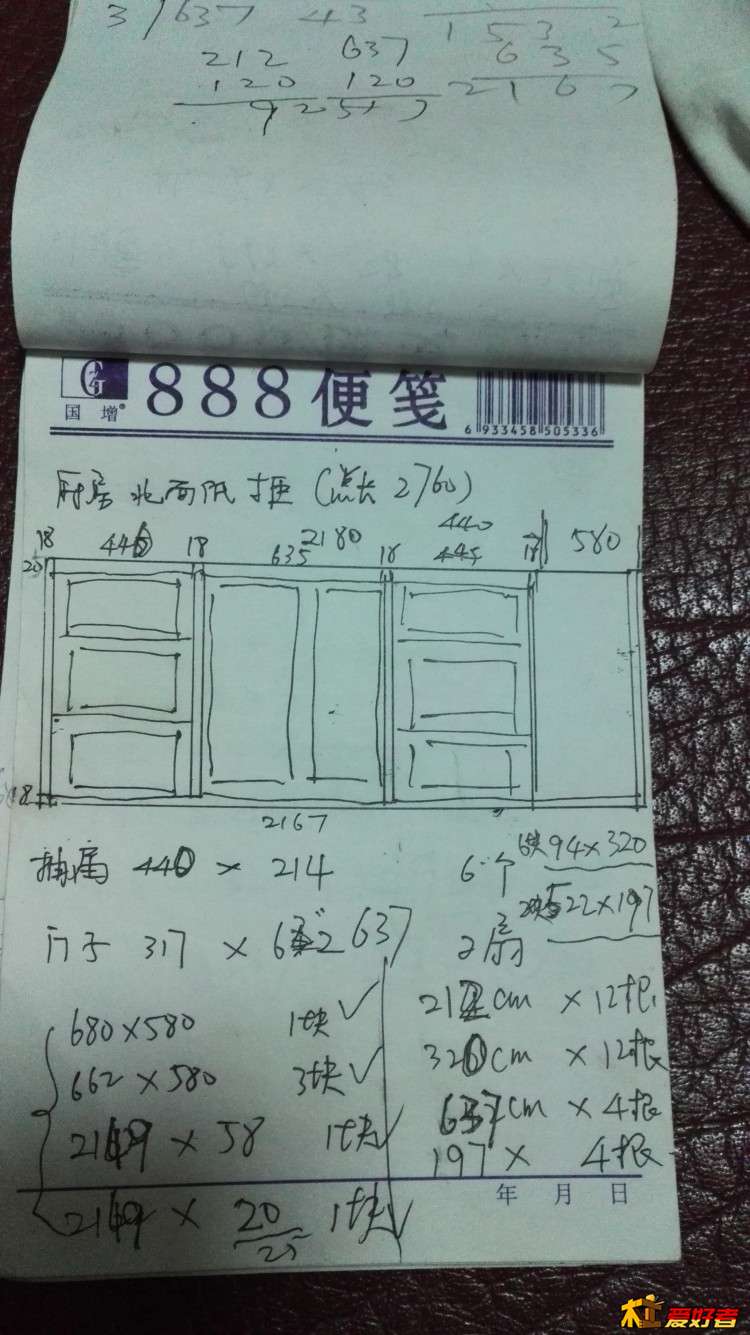 3/637 43 1532
212 637 635
120 120 2167
9257
国增®
888便笺
6 933458 505336
厨房北面低柜(总长2760)
18 440 18 635 2180 18 440 18 580
20 445
18
2167
抽屉 440 × 214 6个 6块94×320
2块522×197
门子 317 × 637 2扇
680×580 1块√
662×580 3块√
2149×58 1块√
2149 × 20 1块√
212cm ×12根
320cm ×12根
637cm ×4根
197× 4根
年 月 日
木工爱好者